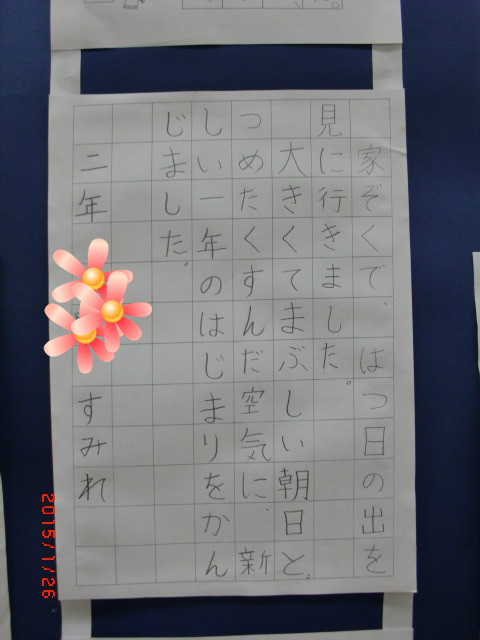 家ぞくで、はつ日の出を
見に行きました。
大きくてまぶしい朝日と、
つめたくすんだ空気に、新
しい一年のはじまりをかん
じました。
二年 すみれ
2015/1/26